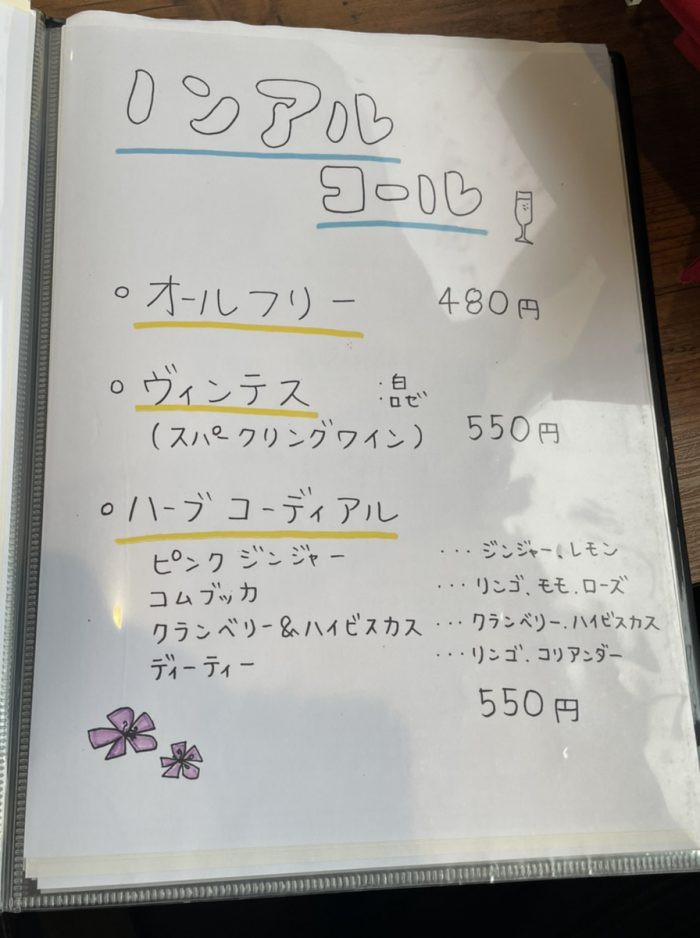 ノンアル
コール
○ オールフリー 480円
○ ヴィンテス ・白
・ロゼ
(スパークリングワイン) 550円
○ ハーブコーディアル
ピンクジンジャー ・・・ジンジャー、レモン
コムブッカ ・・・リンゴ、モモ、ローズ
クランベリー&ハイビスカス ・・・クランベリー、ハイビスカス
ディーティー ・・・リンゴ、コリアンダー
550円